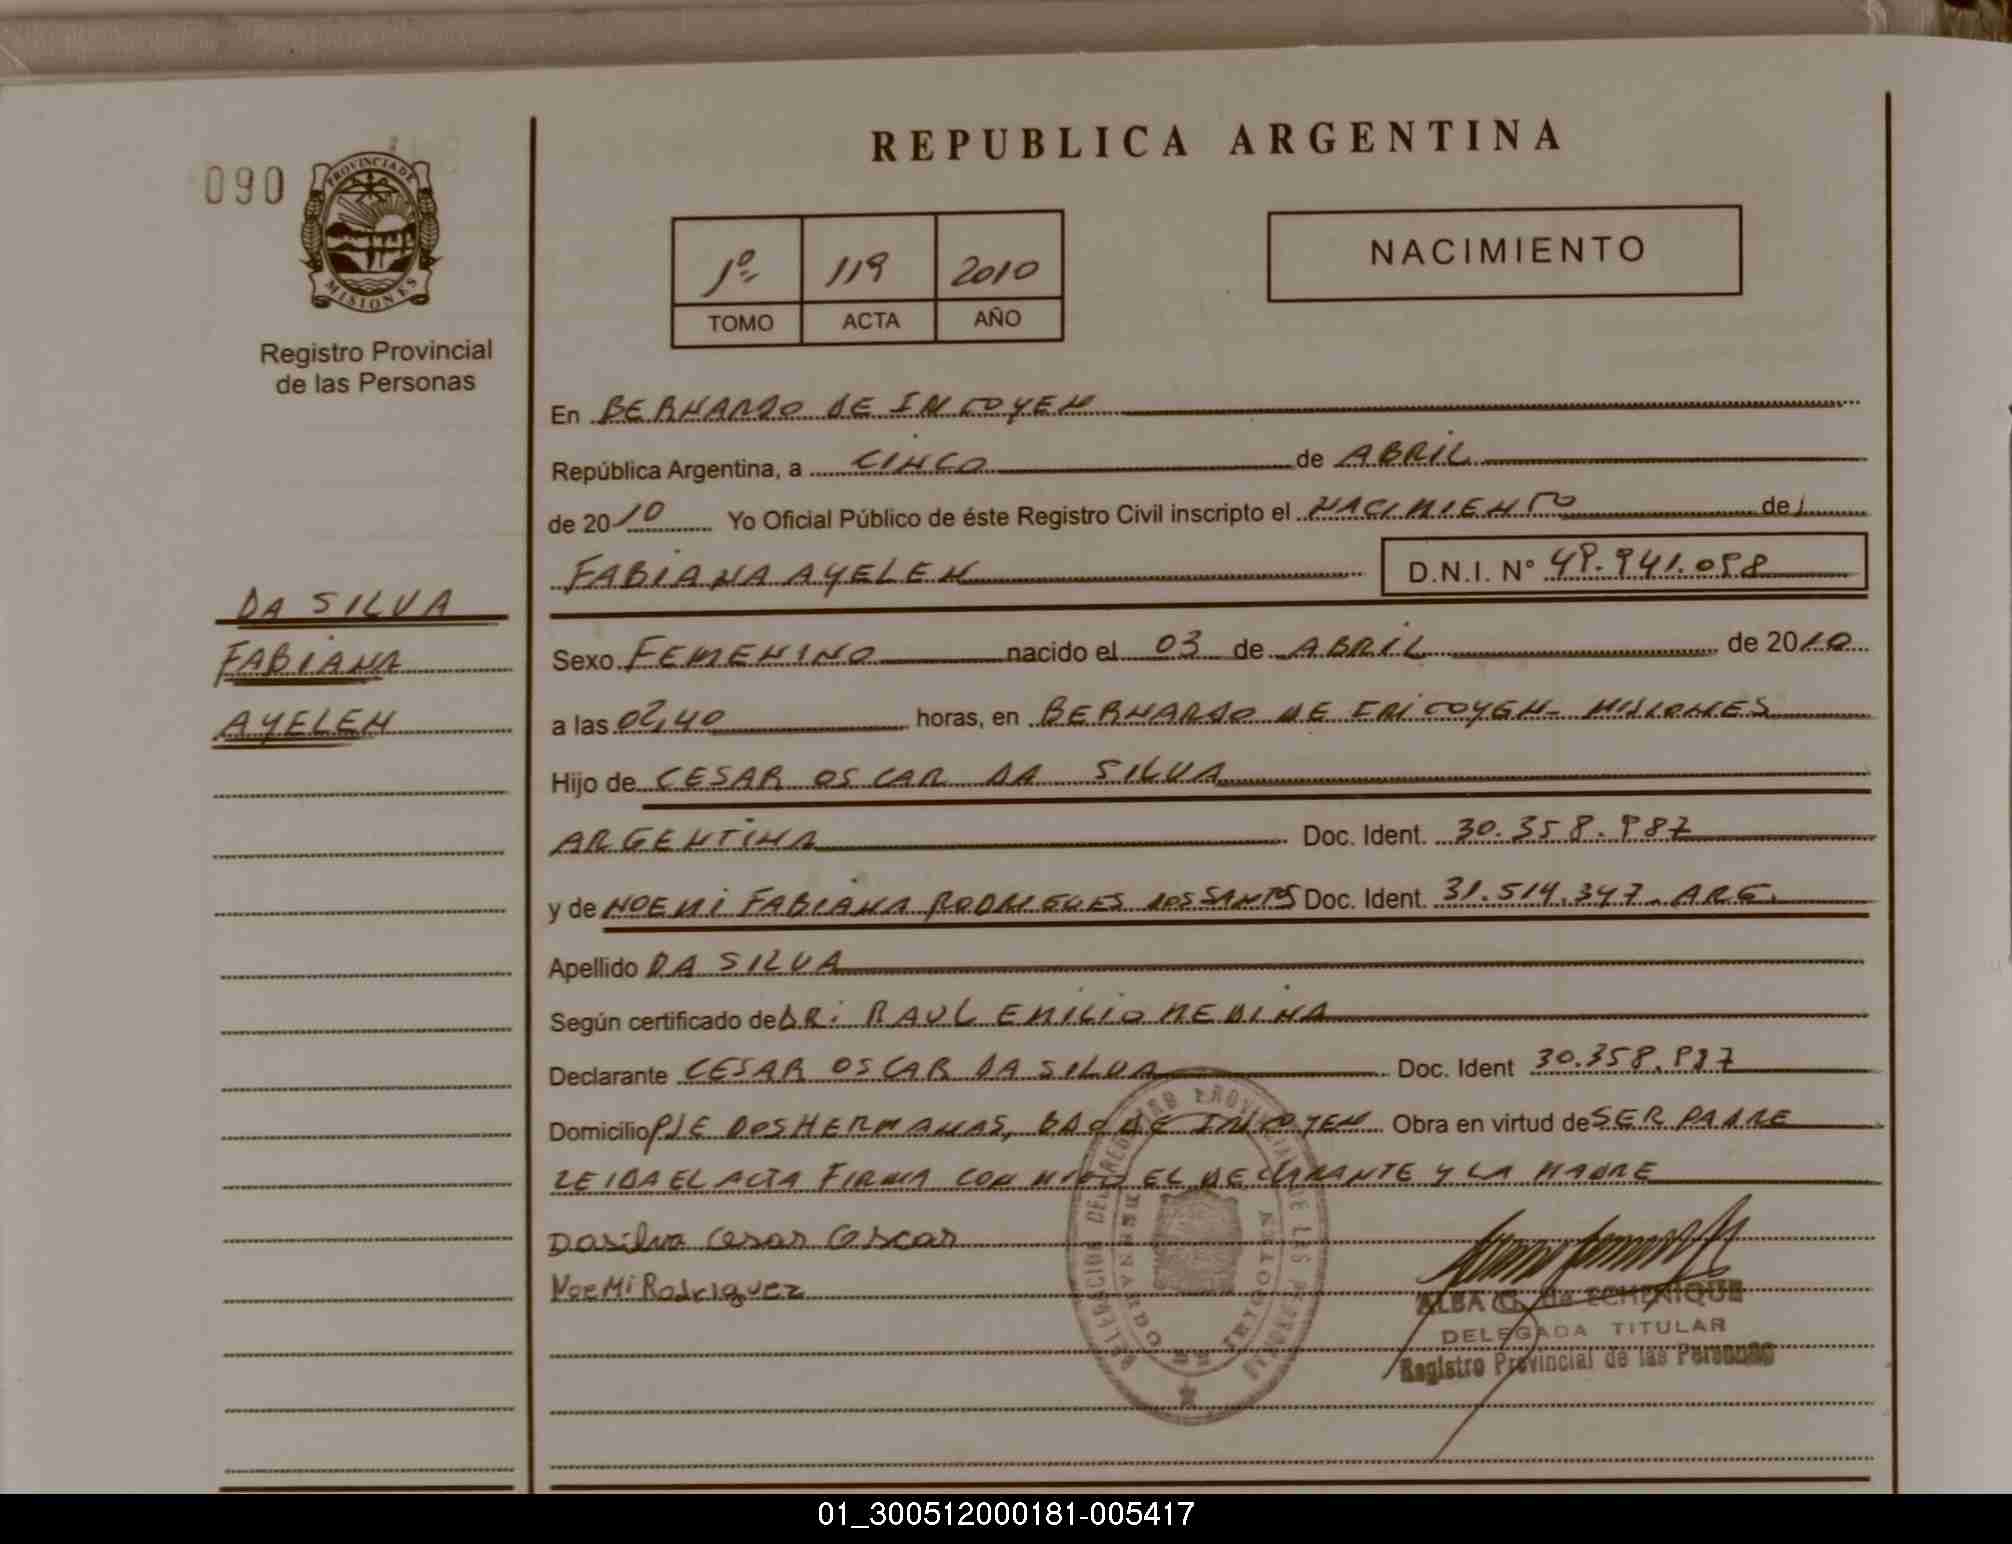 REPUBLICA ARGENTINA
090
PROVINCIA DE MISIONES
Registro Provincial
de las Personas
1º 119 2010
TOMO ACTA AÑO
NACIMIENTO
En BERNARDO DE IRIGOYEN
República Argentina, a CINCO de ABRIL
de 2010 Yo Oficial Público de éste Registro Civil inscripto el NACIMIENTO de
FABIANA AYELEN D.N.I. Nº
DA SILVA
FABIANA
AYELEN
Sexo FEMENINO nacido el 03 de ABRIL de 2010
a las 02,40 horas, en BERNARDO DE IRIGOYEN - MISIONES
Hijo de CESAR OSCAR DA SILVA
ARGENTINA Doc. Ident. 30.358.987
y de NOEMI FABIANA RODRIGUES DOS SANTOS Doc. Ident. 31.514.347. ARG.
Apellido DA SILVA
Según certificado de DR: RAUL EMILIO MEDINA
Declarante CESAR OSCAR DA SILVA Doc. Ident 30.358.987
Domicilio PJE DOS HERMANAS, BDO DE IRIGOYEN Obra en virtud de SER PADRE
LEIDA EL ACTA FIRMA CON MIGO EL DECLARANTE Y LA MADRE
Dasilva Cesar Oscar
NoeMi Rodriguez
ALBA G. de ECHENIQUE
DELEGADA TITULAR
Registro Provincial de las Personas
01_300512000181-005417